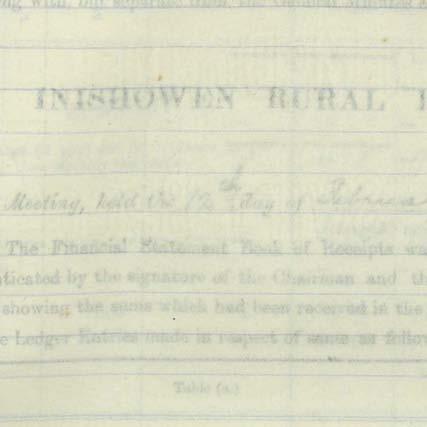 ng with, but separate from, the General Minutes
INISHOWEN RURAL
Meeting, held the 12th day of Februar
The Financial Statement Book of Receipts wa
nticated by the signature of the Chairman and th
showing the sums which had been received in the
e Ledger Entries made in respect of same as follow
Table (a.)